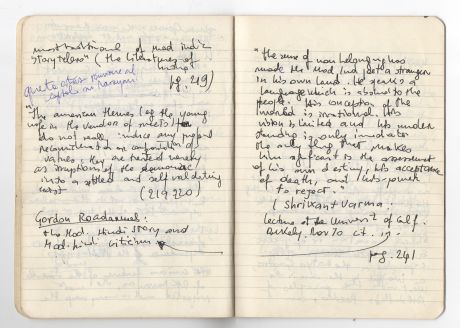 most traditional of mod indian
storytellers" (the literatures of
India
pg. 219)
quote other
"The american Heroes (eg the young
man in the Vendor of sweets) too
do not really induce any profound
or confrontation of
values; they are treated merely
as irruptions of the demonic
into a settled and self validating
(219 220)
Gordon Roadarmel:
the Mod. Hindi Story and
Mod. hindi Criticism
"the sense of non belonging has
made the Mod Ind poet a stranger
in his own land. He speaks a
language which is to the
people. His conception of the
world is irrational. His
vision is limited and his under
standing is only immediate
the only thing that makes
him significant is the
of his own destiny, his acceptance
of death, and his power
to reject."
(Shrikant Varma.
Lecture at the University of Calif.
Berkeley. Nov 70 cit. in
pg. 241